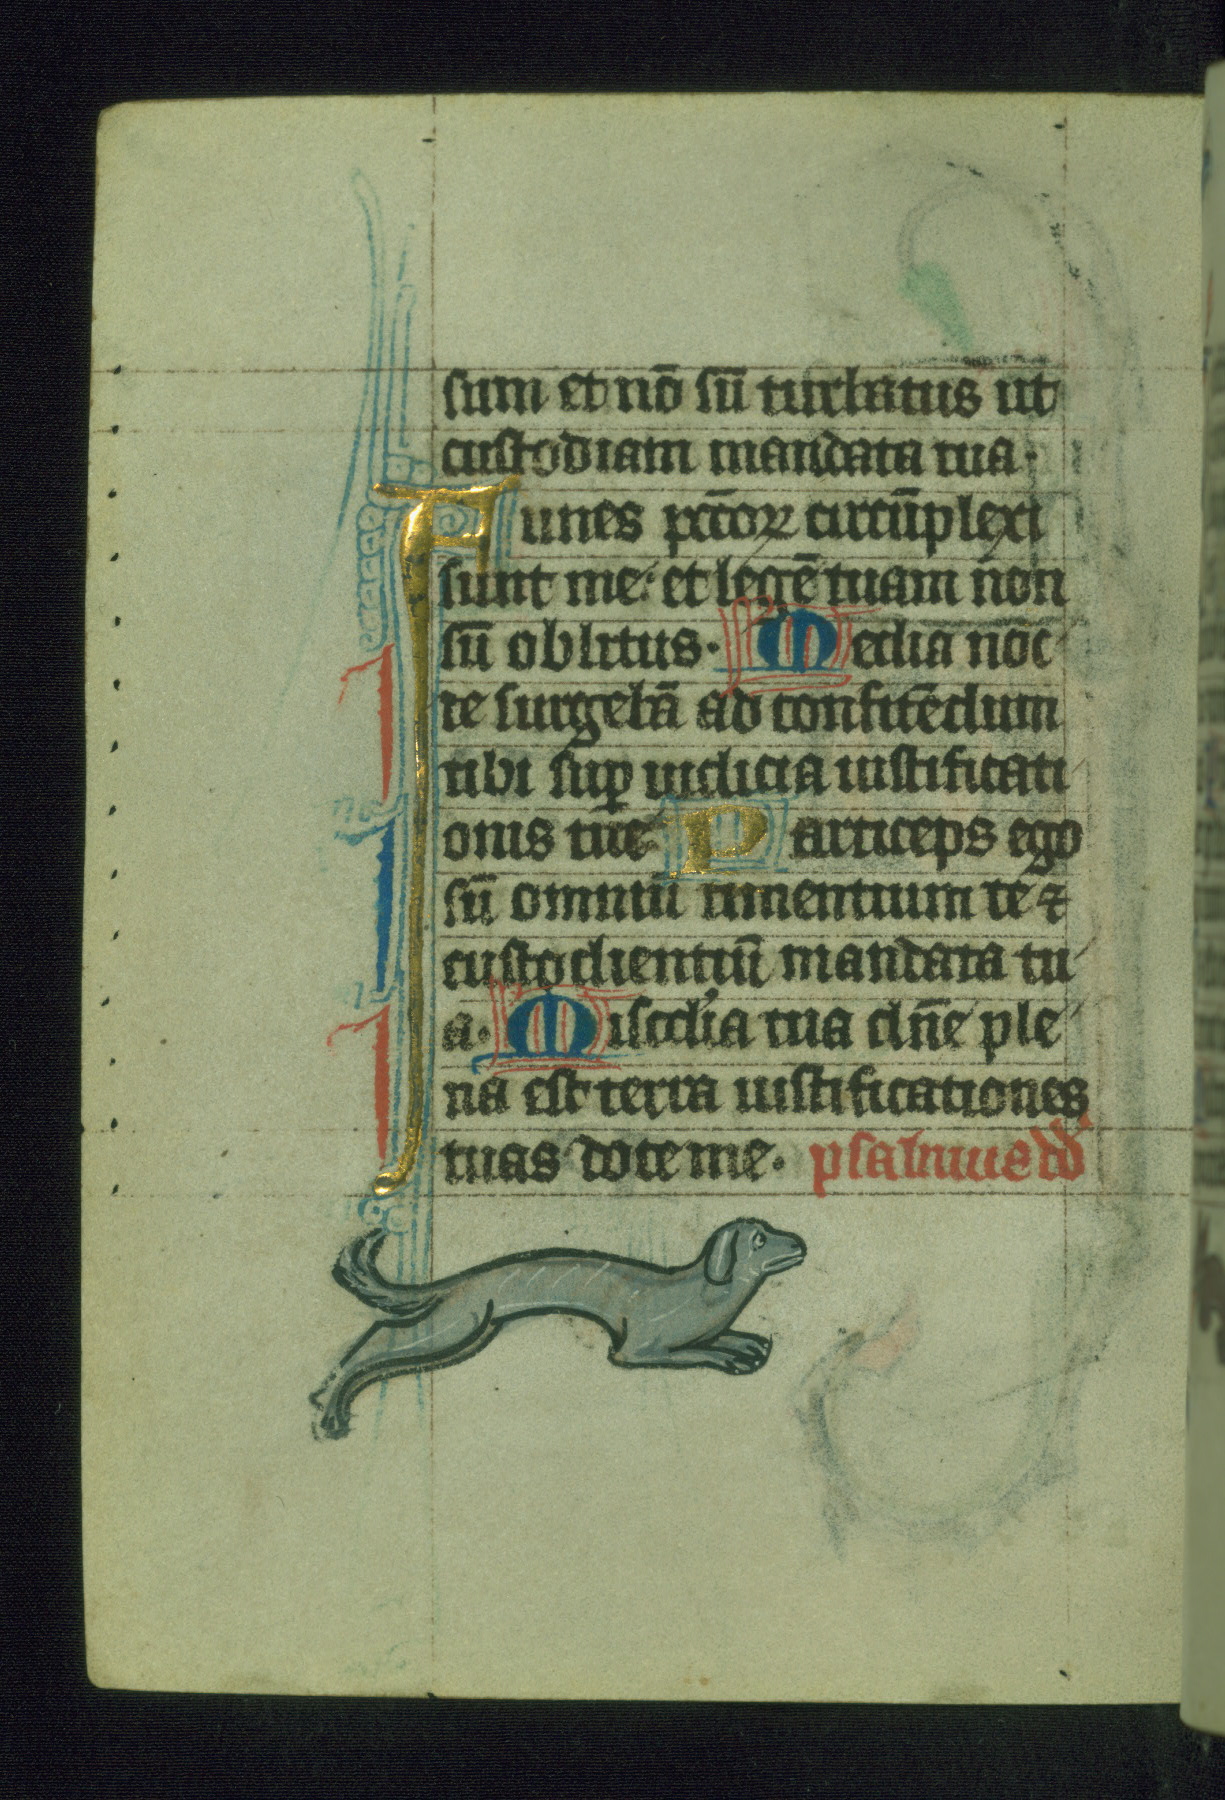 sum et nō sū turbatus ut
custodiam mandata tua·
Funes pctōꝝ circūplexi
sunt me· et legē tuam non
sū oblitus· Media noc
te surgebā ad confitēdum
tibi suꝑ iudicia iustificati
onis tue· Particeps ego
sū omniū timentium te ⁊
custodientiū mandata tu
a· Miscd'ia tua dn̄e ple
na est terra iustificationes
tuas doce me· psalmus dd